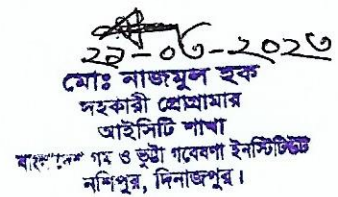 ২৯-০৩-২০২৩
মোঃ নাজমুল হক
সহকারী প্রোগ্রামার
আইসিটি শাখা
বাংলাদেশ গম ও ভুট্টা গবেষণা ইনস্টিটিউট
নশিপুর, দিনাজপুর।